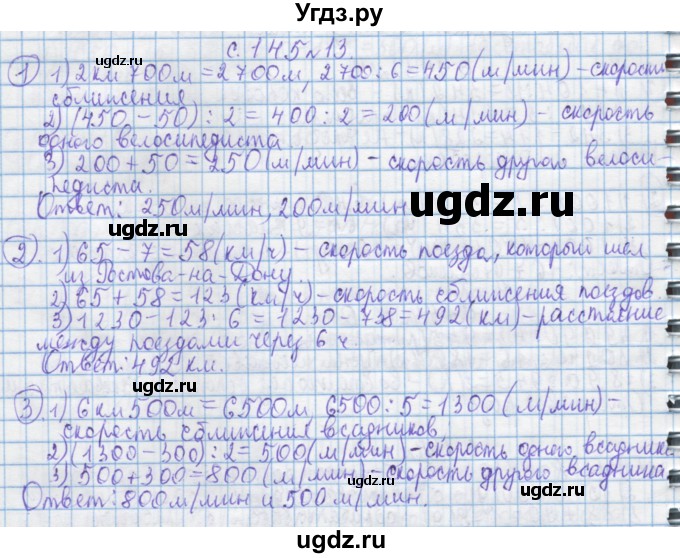 Угдз.ру
с. 145 № 13.
1 1) 2 км 700 м = 2700 м, 2700 : 6 = 450 (м/мин) – скорость
сближения
2) (450 – 50) : 2 = 400 : 2 = 200 (м/мин) – скорость
одного велосипедиста
3) 200 + 50 = 250 (м/мин) – скорость другого велоси-
педиста.
Ответ: 250 м/мин, 200 м/мин
2 1) 65 – 7 = 58 (км/ч) – скорость поезда, который шёл
из Ростова-на-Дону.
2) 65 + 58 = 123 (км/ч) – скорость сближения поездов
3) 1230 – 123 · 6 = 1230 – 738 = 492 (км) – расстояние
между поездами через 6 ч.
Ответ: 492 км.
3 1) 6 км 500 м = 6500 м, 6500 : 5 = 1300 (м/мин) –
скорость сближения всадников
2) (1300 – 300) : 2 = 500 (м/мин) – скорость одного всадника
3) 500 + 300 = 800 (м/мин) – скорость другого всадника
Ответ: 800 м/мин и 500 м/мин.
ugdz.ru
ugdz.ru
ugdz.ru
ugdz.ru
ugdz.ru
ugdz.ru
ugdz.ru
ugdz.ru
ugdz.ru
ugdz.ru
ugdz.ru
ugdz.ru
Угдз.ру